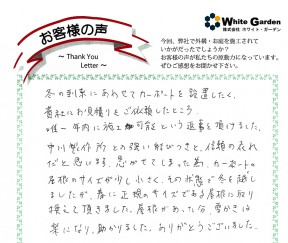 お客様の声
～ Thank You
Letter ～
White Garden
株式会社 ホワイト・ガーデン
今回、弊社で外構・お庭を施工されて
いかがだったでしょうか？
お客様の声が私たちの原動力になっています。
ぜひご感想をお聞かせ下さい。
冬の到来にあわせてカーポートを設置したく、
貴社にお見積りをご依頼したところ、
唯一年内に施工可能という返事を頂けました。
中川製作所との強い結びつきと、信頼の表れ
だと思います。急がせてしまった為、カーポートの
屋根のサイズが少し小さく、そのお状態で冬を越し
ましたが、春に正規のサイズである屋根に取り
換えて頂きました。屋根があった分、雪かきは
楽になり、助かりました。ありがとうございました。